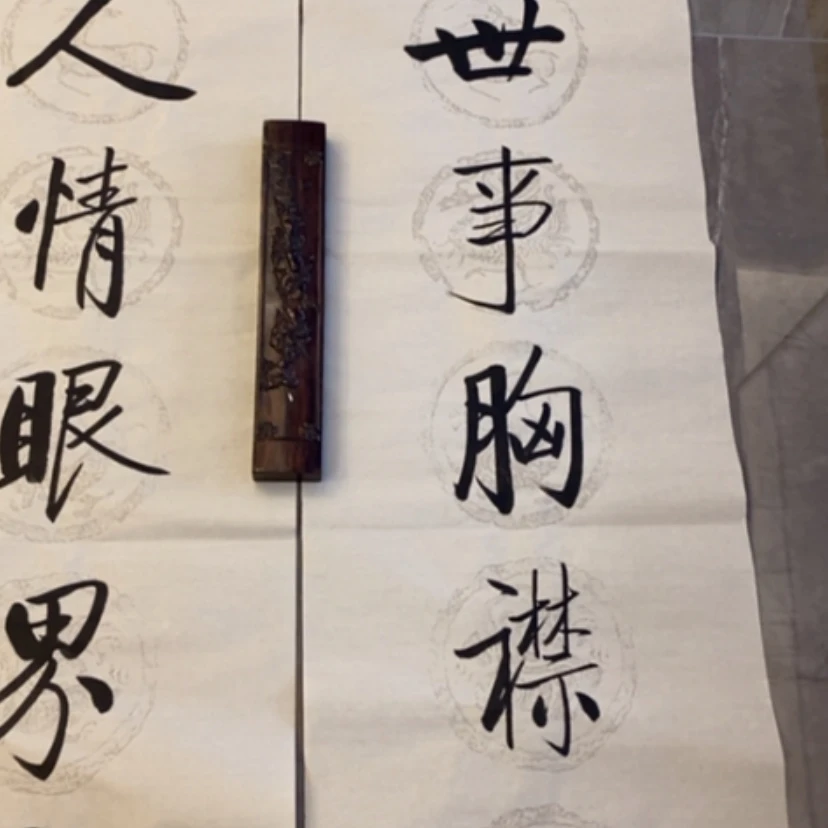 世事胸襟
人情眼界